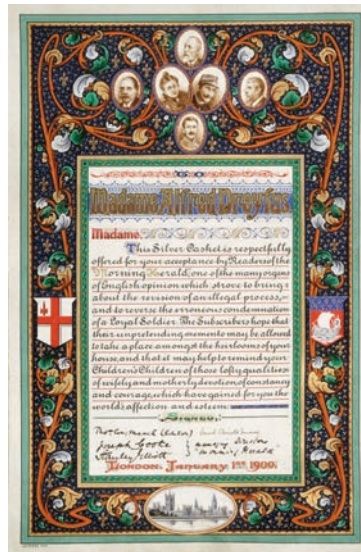 Madame Alfred Dreyfus
Madame.
This Silver Casket is respectfully
offered for your acceptance by Readers of the
Morning Herald, one of the many organs
of English opinion which strove to bring
about the revision of an illegal process,
and to reverse the erroneous condemnation
of a Loyal Soldier. The Subscribers hope that
their unpretending memento may be allowed
to take a place amongst the heirlooms of your
house, and that it may help to remind your
Children's Children of those lofty qualities
of wifely and motherly devotion of constancy
and courage, which have gained for you the
world's affection and esteem.
Signed,
Joseph Cooke
Morning Herald
London, January 1st 1900.